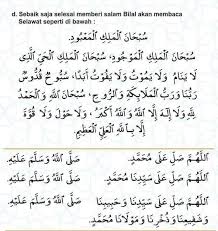 d. Sebaik saja selesai memberi salam Bilal akan membaca
Selawat seperti di bawah :
سُبْحَانَ الْمَلِكِ الْمَعْبُوْدِ.
سُبْحَانَ الْمَلِكِ الْمَوْجُوْدِ، سُبْحَانَ الْمَلِكِ الْحَيِّ الَّذِى
لَا يَنَامُ وَلَا يَمُوْتُ وَلَا يَفُوْتُ أَبَدًا، سُبُّوْحٌ قُدُّوْسٌ
رَبُّنَا وَرَبُّ الْمَلَائِكَةِ وَالرُّوْحِ، سُبْحَانَ اللهِ وَالْحَمْدُ
لِلّٰهِ وَلَا إِلٰهَ إِلَّا اللهُ وَاللهُ أَكْبَرُ، وَلَا حَوْلَ وَلَا قُوَّةَ
إِلَّا بِاللهِ الْعَلِيِّ الْعَظِيْمِ.
اَللّٰهُمَّ صَلِّ عَلَى مُحَمَّدٍ. صَلَّى اللهُ وَسَلَّمَ عَلَيْهِ.
اَللّٰهُمَّ صَلِّ عَلَى سَيِّدِنَا مُحَمَّدٍ. صَلَّى اللهُ وَسَلَّمَ عَلَيْهِ.
اَللّٰهُمَّ صَلِّ عَلَى سَيِّدِنَا وَحَبِيْبِنَا
وَشَفِيْعِنَا وَذُخْرِنَا وَمَوْلَانَا مُحَمَّدٍ. صَلَّى اللهُ وَسَلَّمَ عَلَيْهِ.